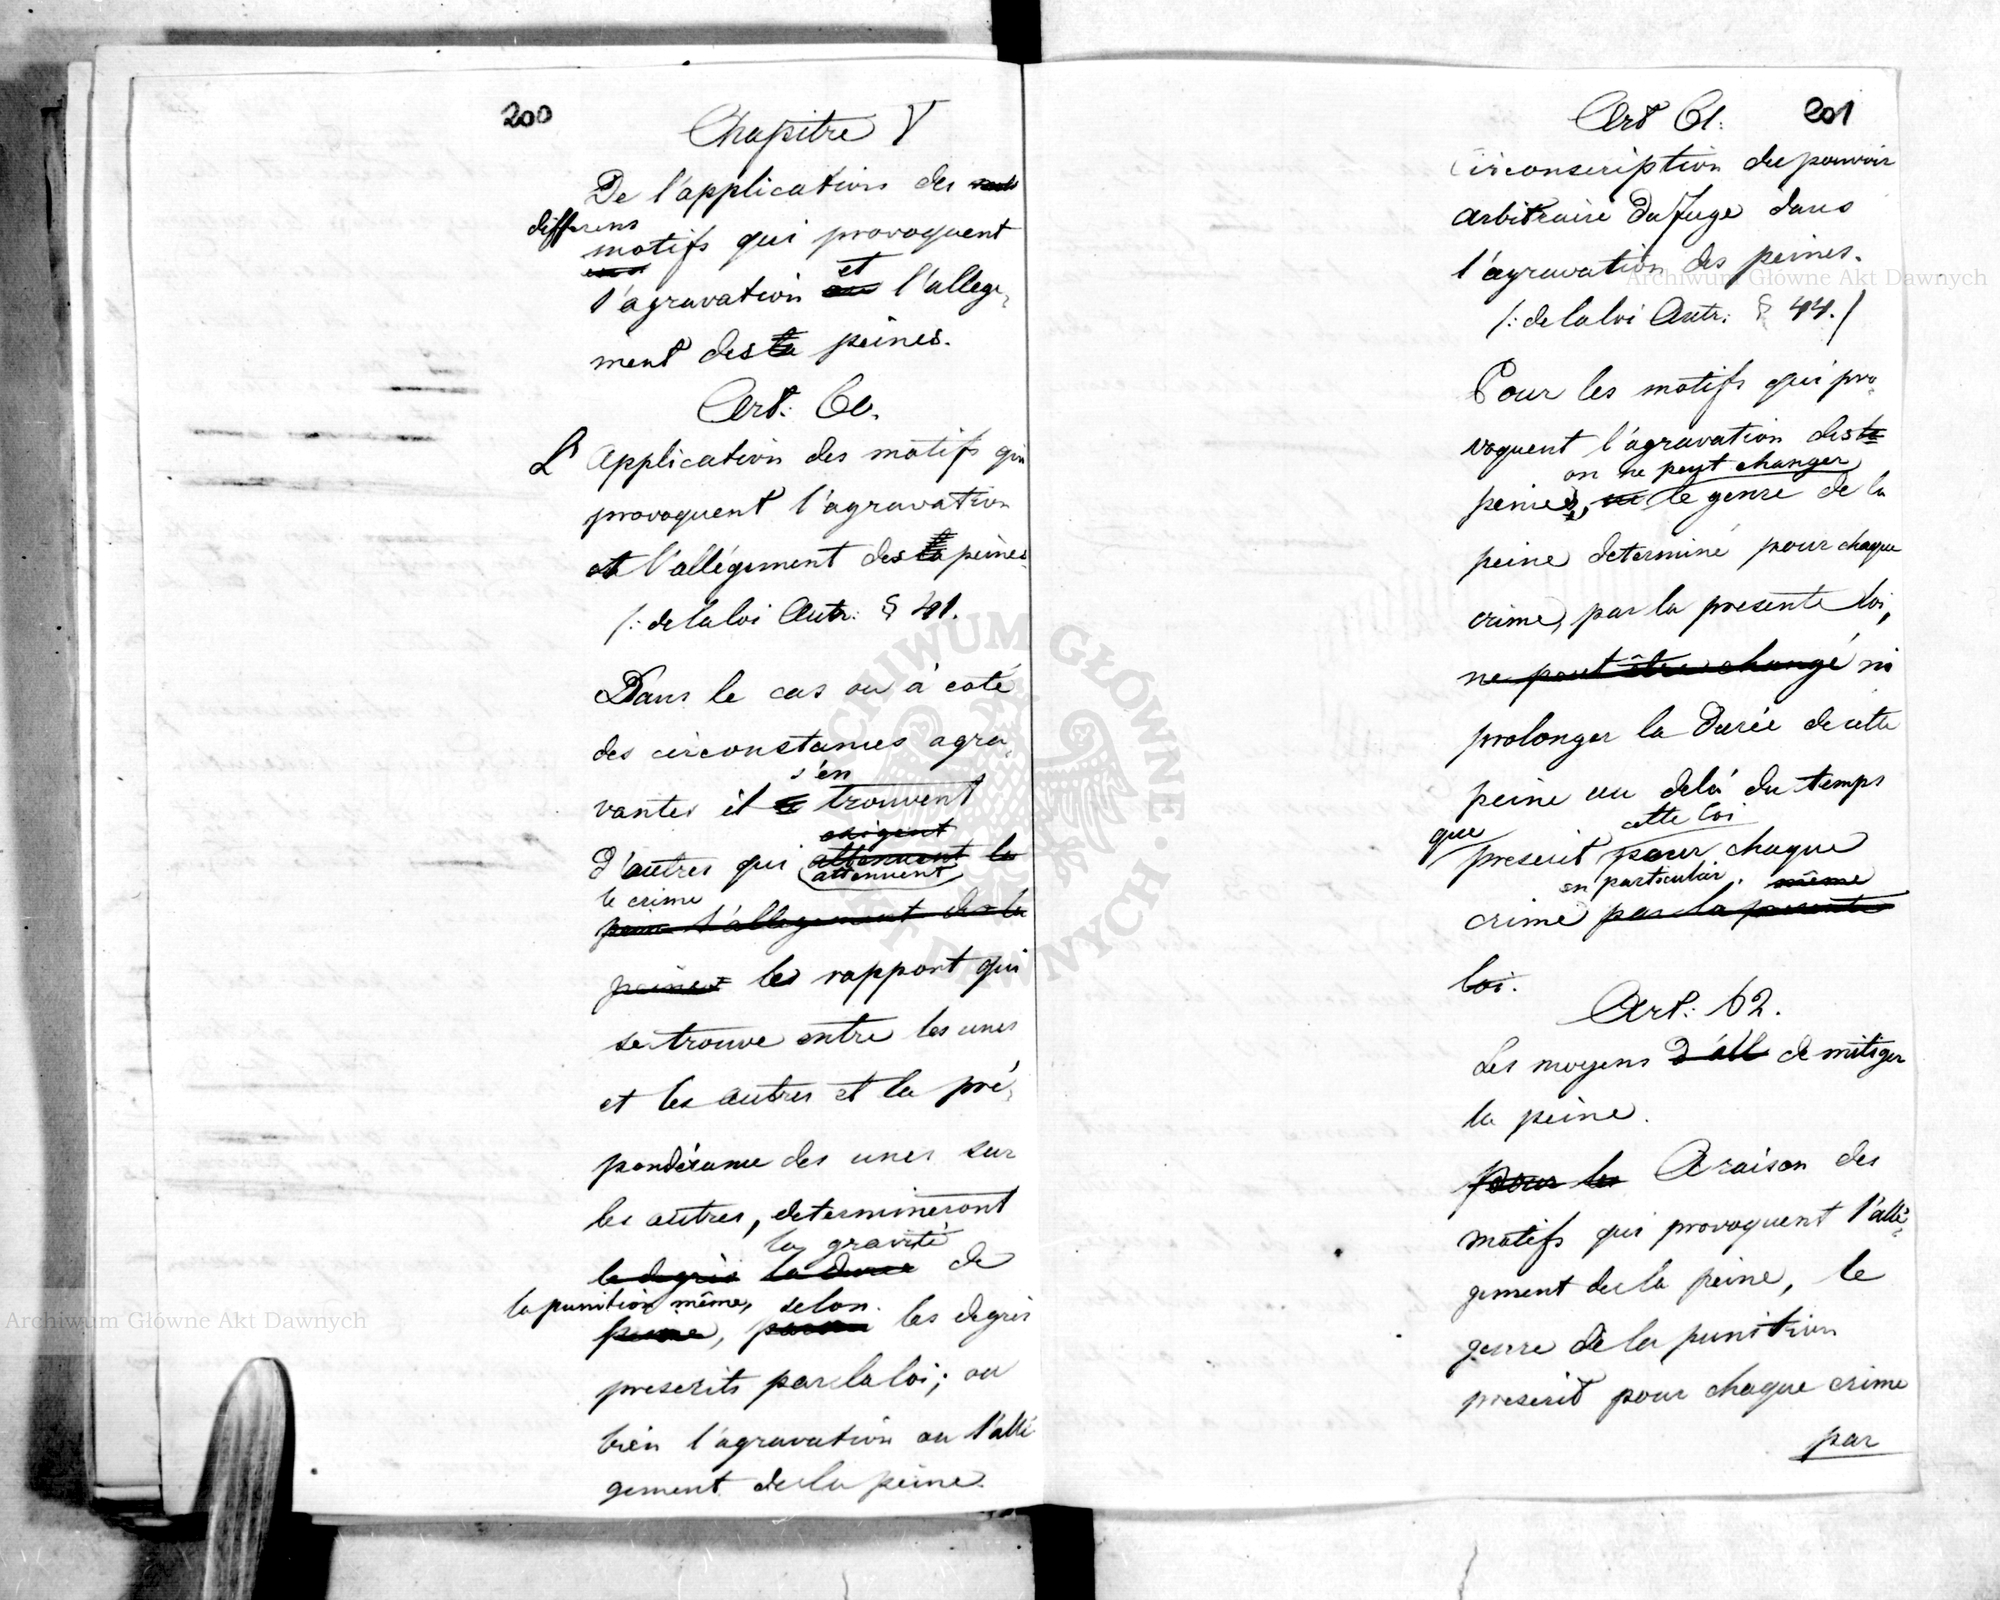 200
Chapitre V
De l'application des
differens
motifs qui provoquent
et
l'agravation ou l'allege,
ment des la peines.
Art: 60.
L'Application des motifs qui
provoquent l'agravation
et l'allégement des la peines
/: de la loi Autr: § 41.
Dans le cas ou à coté
des circonstances agra,
s'en
vantes il trouvent
exigent
d'autres qui attenuent la
attenuent
le crime
peine l'allegement de la
peines les rapport qui
se trouve entre les unes
et les autres et la pré,
pondérance des unes sur
les autres, determineront
la gravité
le degrés la durée de
la punition même, selon
peine, les degrés
prescrits par la loi; ou
bien l'agravation ou l'allé
gement de la peine.
201
Art 61.
Circonscription du pouvoir
arbitraire Du Juge dans
l'agravation des peines.
/: de la loi Autr: § 44. /
Pour les motifs qui pro,
voquent l'agravation des la
on ne peut changer
peines, le genre de la
peine determiné pour chaque
crime, par la presente loi,
ne peut être changé ni
prolonger la Durée de cette
peine au delà du temps
cette loi
que
prescrit pour chaque
en particulier. même
crime par la presente
loi.
Art: 62.
Les moyens d'all de mitiger
la peine.
pour les A raison des
motifs qui provoquent l'allé,
gement de la peine, le
genre de la punition
prescrit pour chaque crime
par
Archiwum Główne Akt Dawnych
Archiwum Główne Akt Dawnych
ARCHIWUM GŁÓWNE AKT DAWNYCH